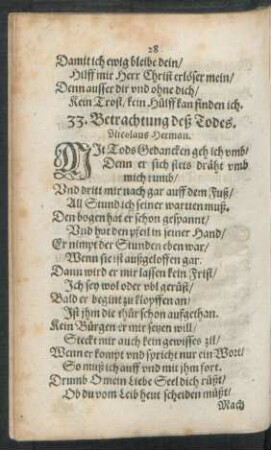 28
Damit ich ewig bleibe dein/
Hilff mir Herr Christ erlöser mein/
Denn ausser dir vnd ohne dich/
Kein Trost/ kein Hülff kan finden ich.
33. Betrachtung deß Todes.
Nicolaus Herman.
MIt Tods Gedancken geh ich vmb/
Denn er sich stets dräht vmb
mich rumb/
Vnd dritt mir nach gar auff dem Fuß/
All Stund ich seiner warten muß.
Den bogen hat er schon gespannt/
Vnd hat den pfeil in seiner Hand/
Er nimpt der Stunden eben war/
Wenn sie ist außgeloffen gar.
Dann wird er mir lassen kein Frist/
Ich sey wol oder vbl gerüst/
Bald er begint zu klopffen an/
Ist jhm die thür schon auffgethan.
Kein Bürgen er mir setzen will/
Steckt mir auch kein gewisses zil/
Wenn er kompt vnd spricht nur ein Wort/
So muß ich auff vnd mit jhm fort.
Drumb O mein Liebe Seel dich rüßt/
Ob du vom Leib heut scheiden müßt/
Mach